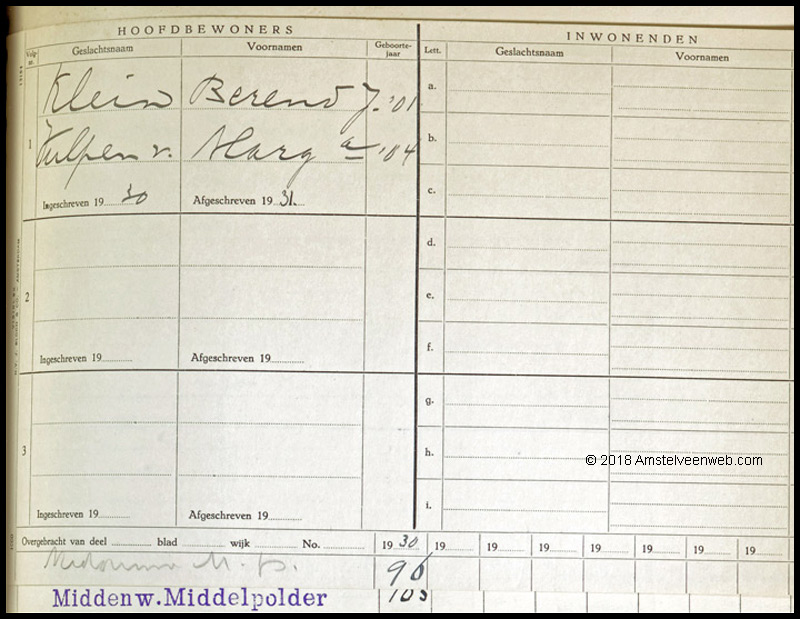 HOOFDBEWONERS INWONENDEN
Volg- nr. Geslachtsnaam Voornamen Geboorte- jaar Lett. Geslachtsnaam Voornamen
Klein Berend J. '01 a.
1 Vulpen v. Marg a '04 b.
Ingeschreven 19 30 Afgeschreven 19 31. c.
d.
2 e.
Ingeschreven 19 Afgeschreven 19 f.
g.
3 h.
© 2018 Amstelveenweb.com
Ingeschreven 19 Afgeschreven 19 i.
Overgebracht van deel blad wijk No. 19 30 19 19 19 19 19 19
96
Middenw. Middelpolder 105